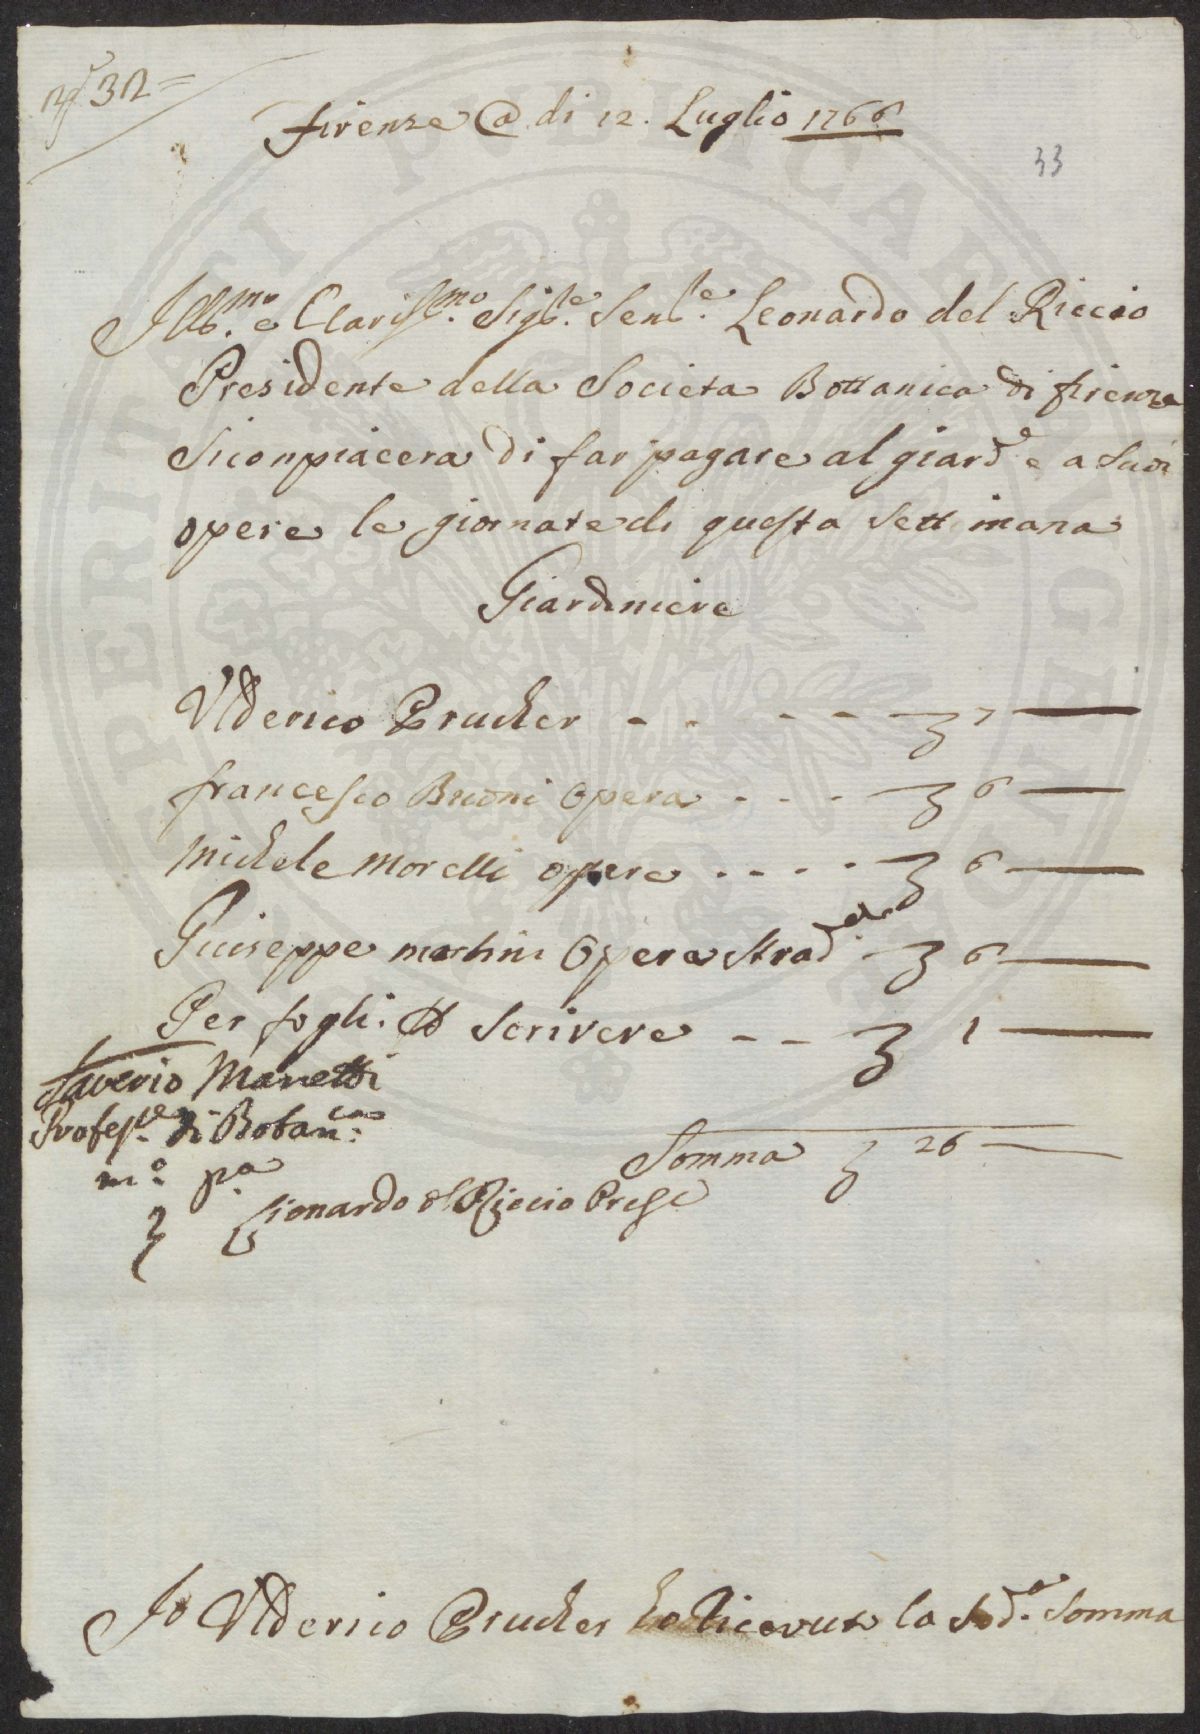 32
Firenze @ di 12. Luglio 1766
33
Ill.mo e Clariss.mo Sig.re Sen.re Leonardo del Riccio
Presidente della Societa Bottanica di firenze
Siconpiacera di far pagare al giard.e e a Suoi
opere le giornate di questa Settimana
Giardiniere
Vlderico Prucker - - - - 7
francesco Buoni Opera - - - 6
Michele Morelli opere - - - - 6
Giuseppe martini Opera Strad 6
Per fogli: da Scrivere - - 1
Saverio Manetti
Profess.re di Botan.ca
m.o p.a
Somma 26
Lionardo del Riccio Preside
Io Vlderico Prucker ho Ricevuto la Sud.a Somma
PERITATI PUBLICAE